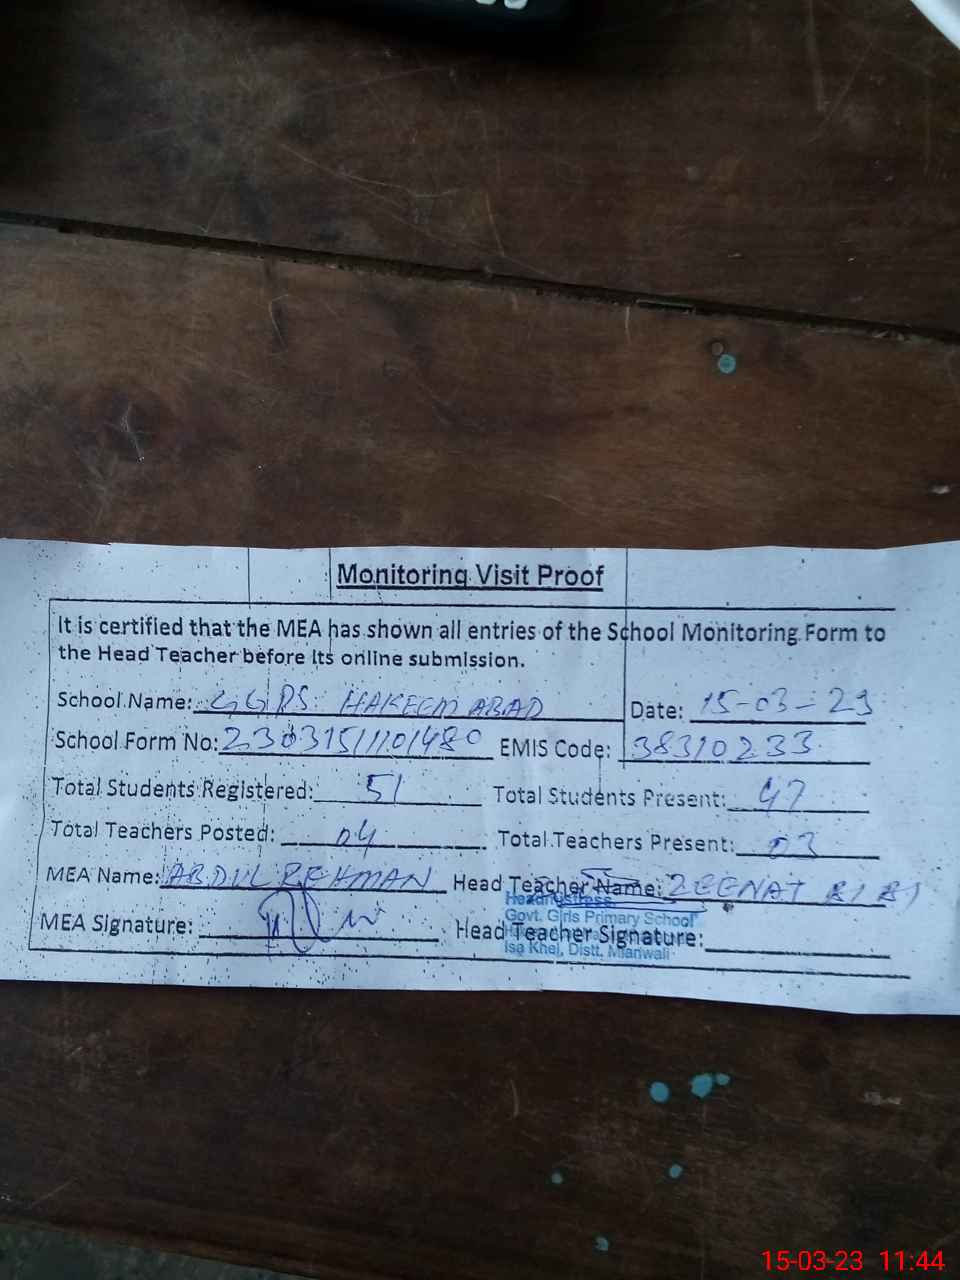 Monitoring Visit Proof
It is certified that the MEA has shown all entries of the School Monitoring Form to
the Head Teacher before its online submission.
School Name: GGPS HAKEEM ABAD Date: 15-03-23
School Form No: 23031511101480 EMIS Code: 38310233
Total Students Registered: 51 Total Students Present: 47
Total Teachers Posted: 04 Total Teachers Present: 03
MEA Name: ABDUL REHMAN Head Teacher Name: ZEENAT BIBI
Headmistress
Govt. Girls Primary School
MEA Signature: Head Teacher Signature:
Isa Khel, Distt. Mianwali
15-03-23 11:44